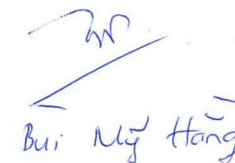 Bùi Mỹ Hằng